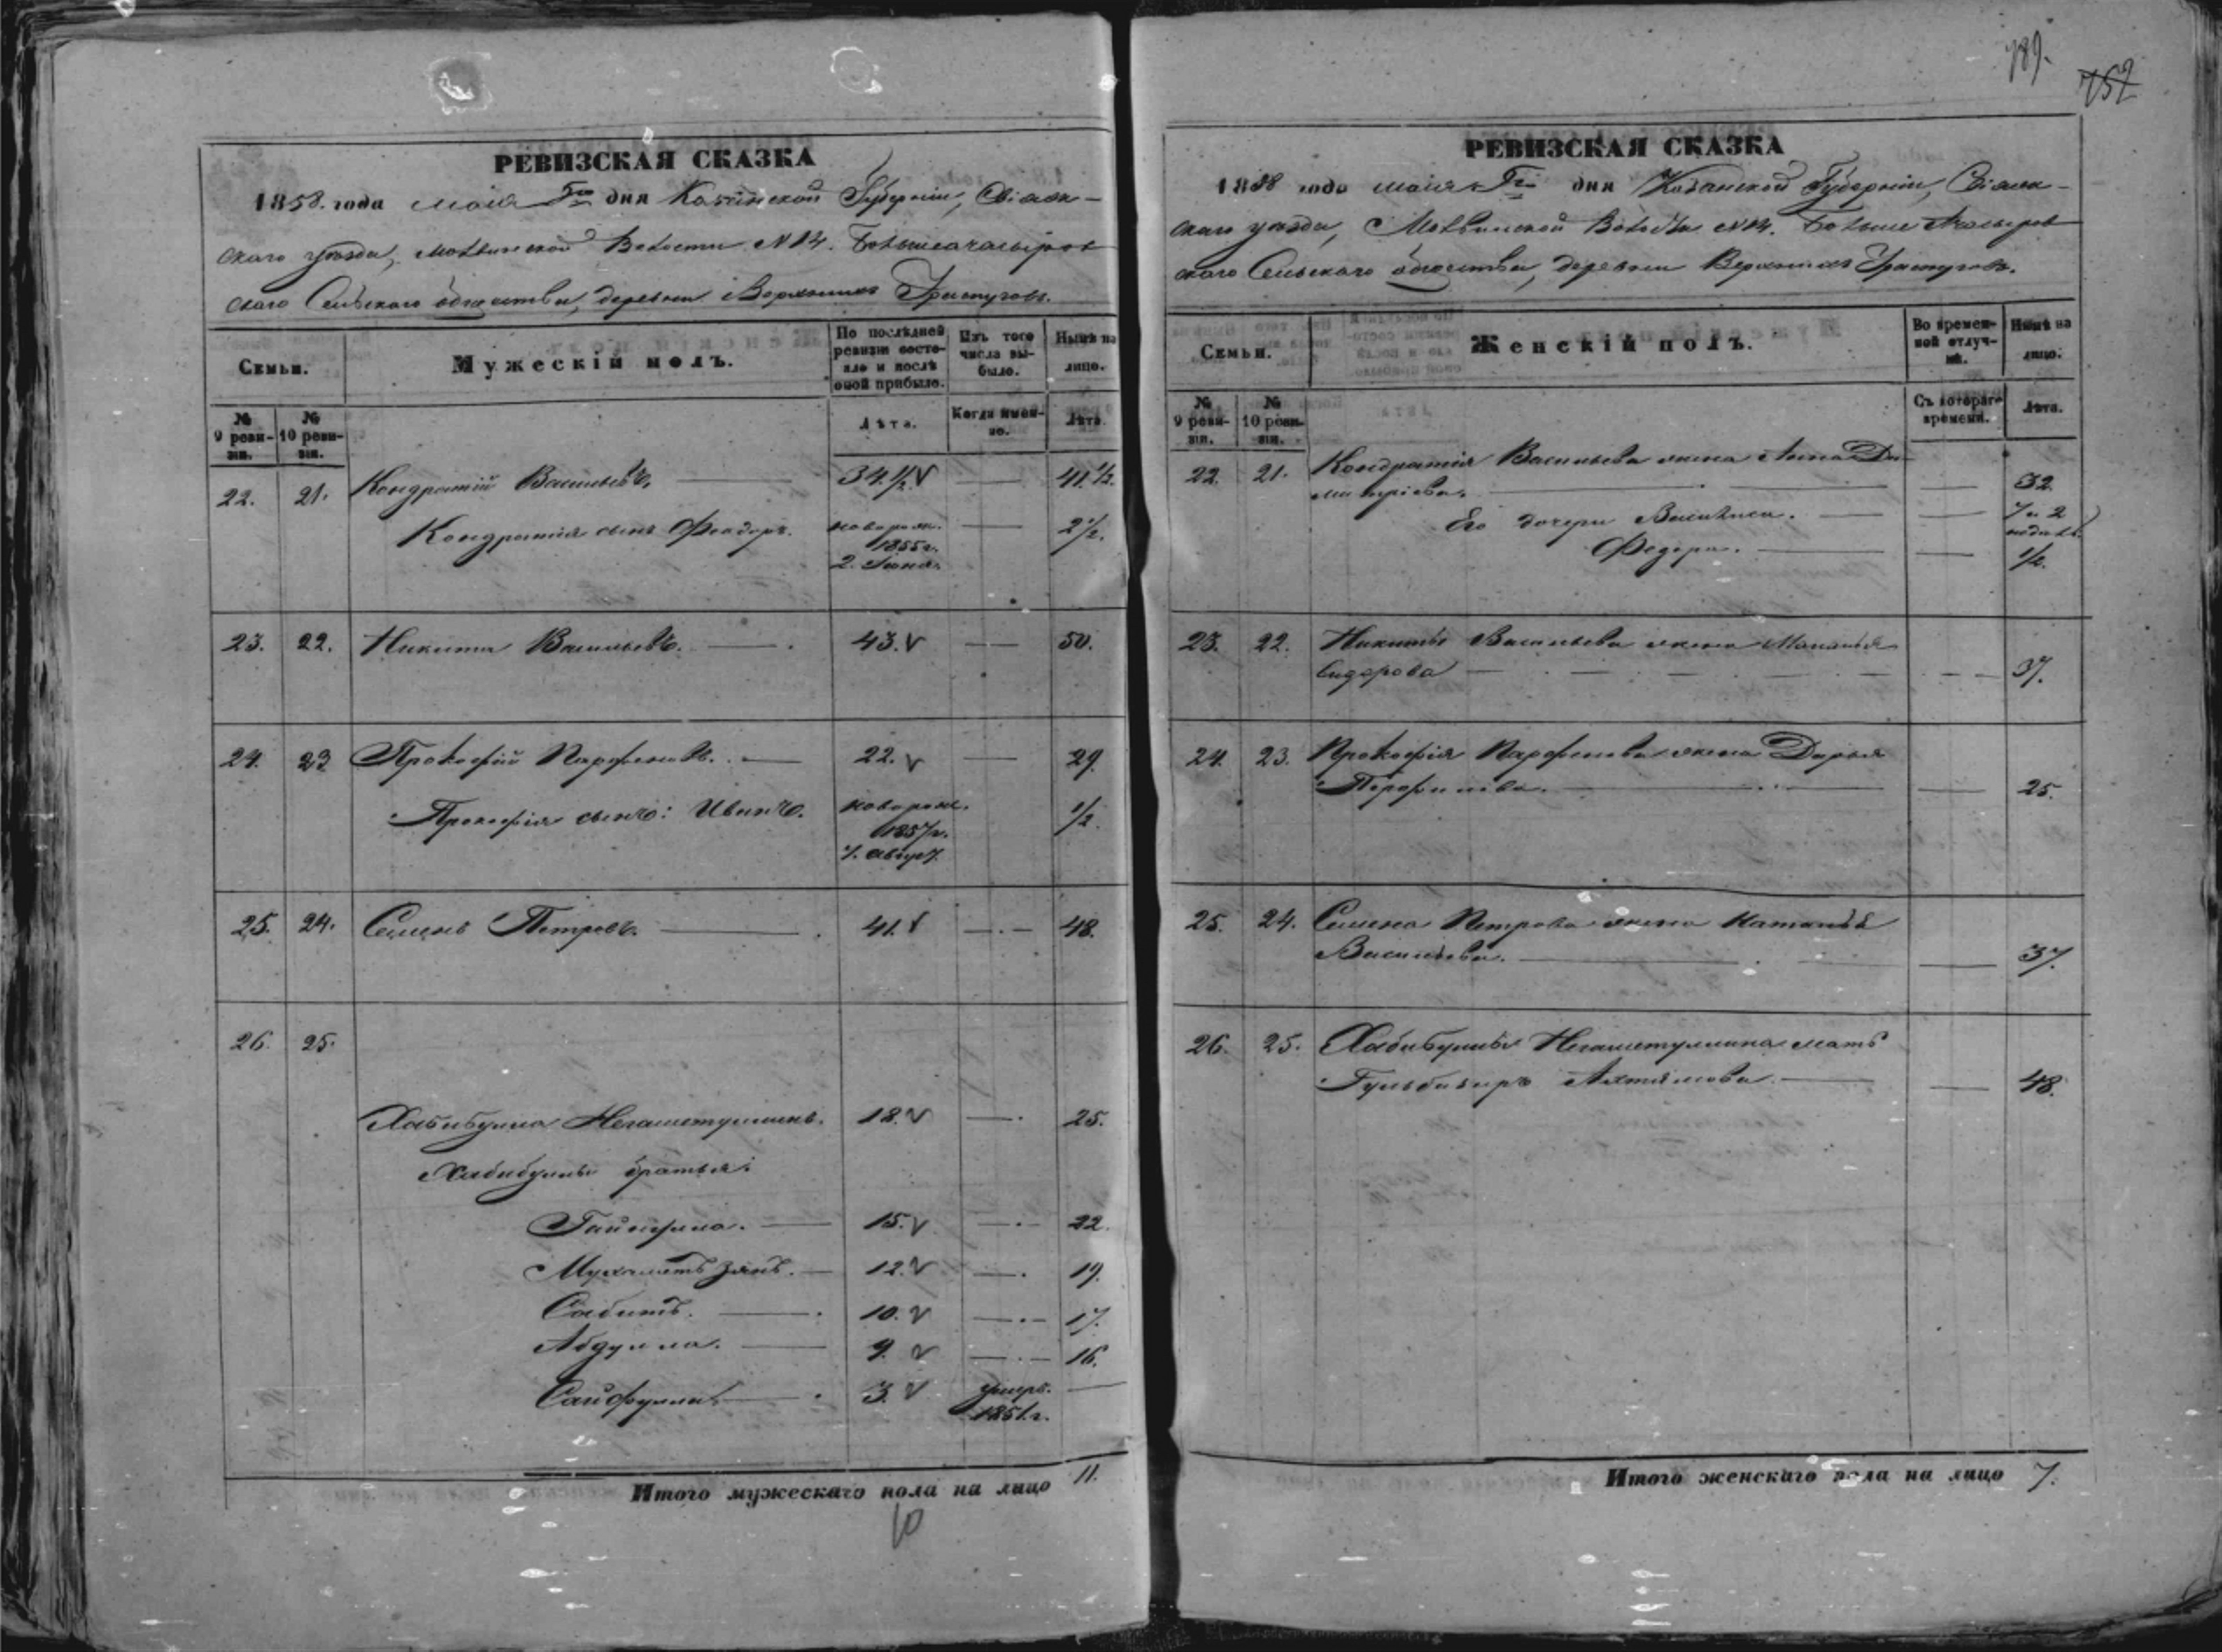 789.
757
РЕВИЗСКАЯ СКАЗКА
1858. года маія дня Казанской Губерніи, Свіяж-
скаго уѣзда, Волости №12.
скаго Сельскаго общества, деревни Верхнихъ
Семьи.
Мужескій полъ.
По послѣдней ревизіи состояло и послѣ оной прибыло.
Изъ того числа выбыло.
Нынѣ на лицо.
№ 9 ревизіи.
№ 10 ревизіи.
Лѣта.
Когда именно.
Лѣта.
22. 21. Кондратій Васильевъ. 34.1/2. 41.1/2.
Кондратія сынъ Феодоръ. новорож. 1855г. 2. 2 1/2.
23. 22. Никита Васильевъ. 43. 50.
24. 23 Прокофій Парфеновъ. 22. 29.
Прокофія сынъ: Иванъ. новорож. 1857г. 7. август. 1/2.
25. 24. Семенъ Петровъ. 41. 48.
26. 25.
Хабибулла Негаметуллинъ. 18. 25.
Хабибуллы братья:
15. 22.
Мухаметъ Зянъ. 12. 19.
Сабитъ. 10. 17.
Абдулла. 9. 16.
Сайфулла 3. умеръ. 1851.г.
Итого мужескаго пола на лицо 11.
10
РЕВИЗСКАЯ СКАЗКА
1858 года маія дня Казанской Губерніи, Свіяж-
скаго уѣзда, Волости №12.
скаго Сельскаго общества, деревни Верхнихъ
Семьи.
Женскій полъ.
Во временной отлучкѣ.
Нынѣ на лицо.
№ 9 ревизіи.
№ 10 ревизіи.
Съ котораго времени.
Лѣта.
22. 21. Кондратія Васильева жена Анна Ди-
митріева. 32.
Его дочери Василиса. 7 и 2
Федора. 1/2.
23. 22. Никиты Васильева жена Маланья
Сидорова 37.
24. 23. Прокофія Парфенова жена Дарья
25.
25. 24. Семена Петрова жена Наталья
Васильева. 37.
26. 25. Хабибуллы Негаметуллина мать
48.
Итого женскаго пола на лицо 7.